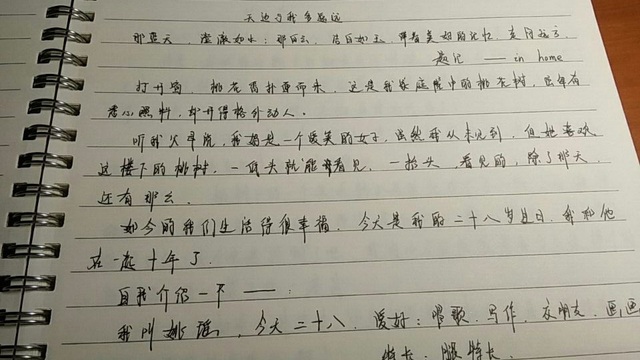 天边与我多遥远
那蓝天，澄澈如水；那白云，洁白如玉，带着美好的记忆，走向远方
题记 —— in home
打开窗，桃花香扑面而来，这是我家庭院中的桃花树，虽没有
悉心照料，却开得格外动人。
听我父亲说，我妈是一个爱美的女子，虽然我从未见到，但她喜欢
这楼下的桃树，一低头就能看见，一抬头，看见的，除了那天，
还有那么。
如今的我们生活得很幸福，今天是我的二十八岁生日，我和他
在一起十年了。
自我介绍一下 ——：
我叫姚瑶，今天二十八，爱好：唱歌，写作，交朋友，画画
特长，腿特长